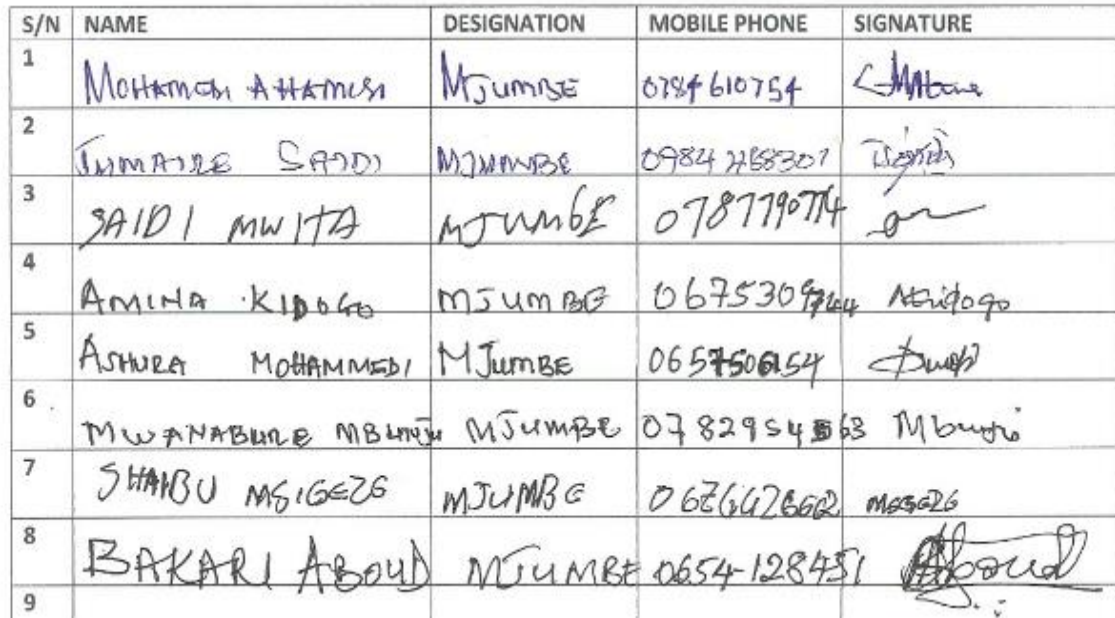 S/N NAME DESIGNATION MOBILE PHONE SIGNATURE
1 MOHAMEDI AHAMISI MJUMBE 0784610754
2 SAIDI MJUMBE
3 SAIDI MWITA MJUMBE 0787790774
4 AMINA KIDOGO MJUMBE Akidogo
5 ASHURA MOHAMMEDI MJUMBE 0657506154
6 MWANABURE MBUNJU MJUMBE 0782954563 Mbunju
7 SHAIBU MSIGEZG MJUMBE
8 BAKARI ABOUD MJUMBE 0654-128451 Aboud
9